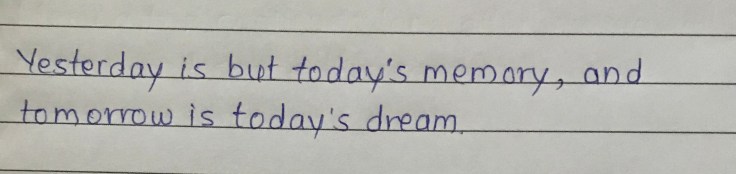 Yesterday is but today's memory, and
tomorrow is today's dream.